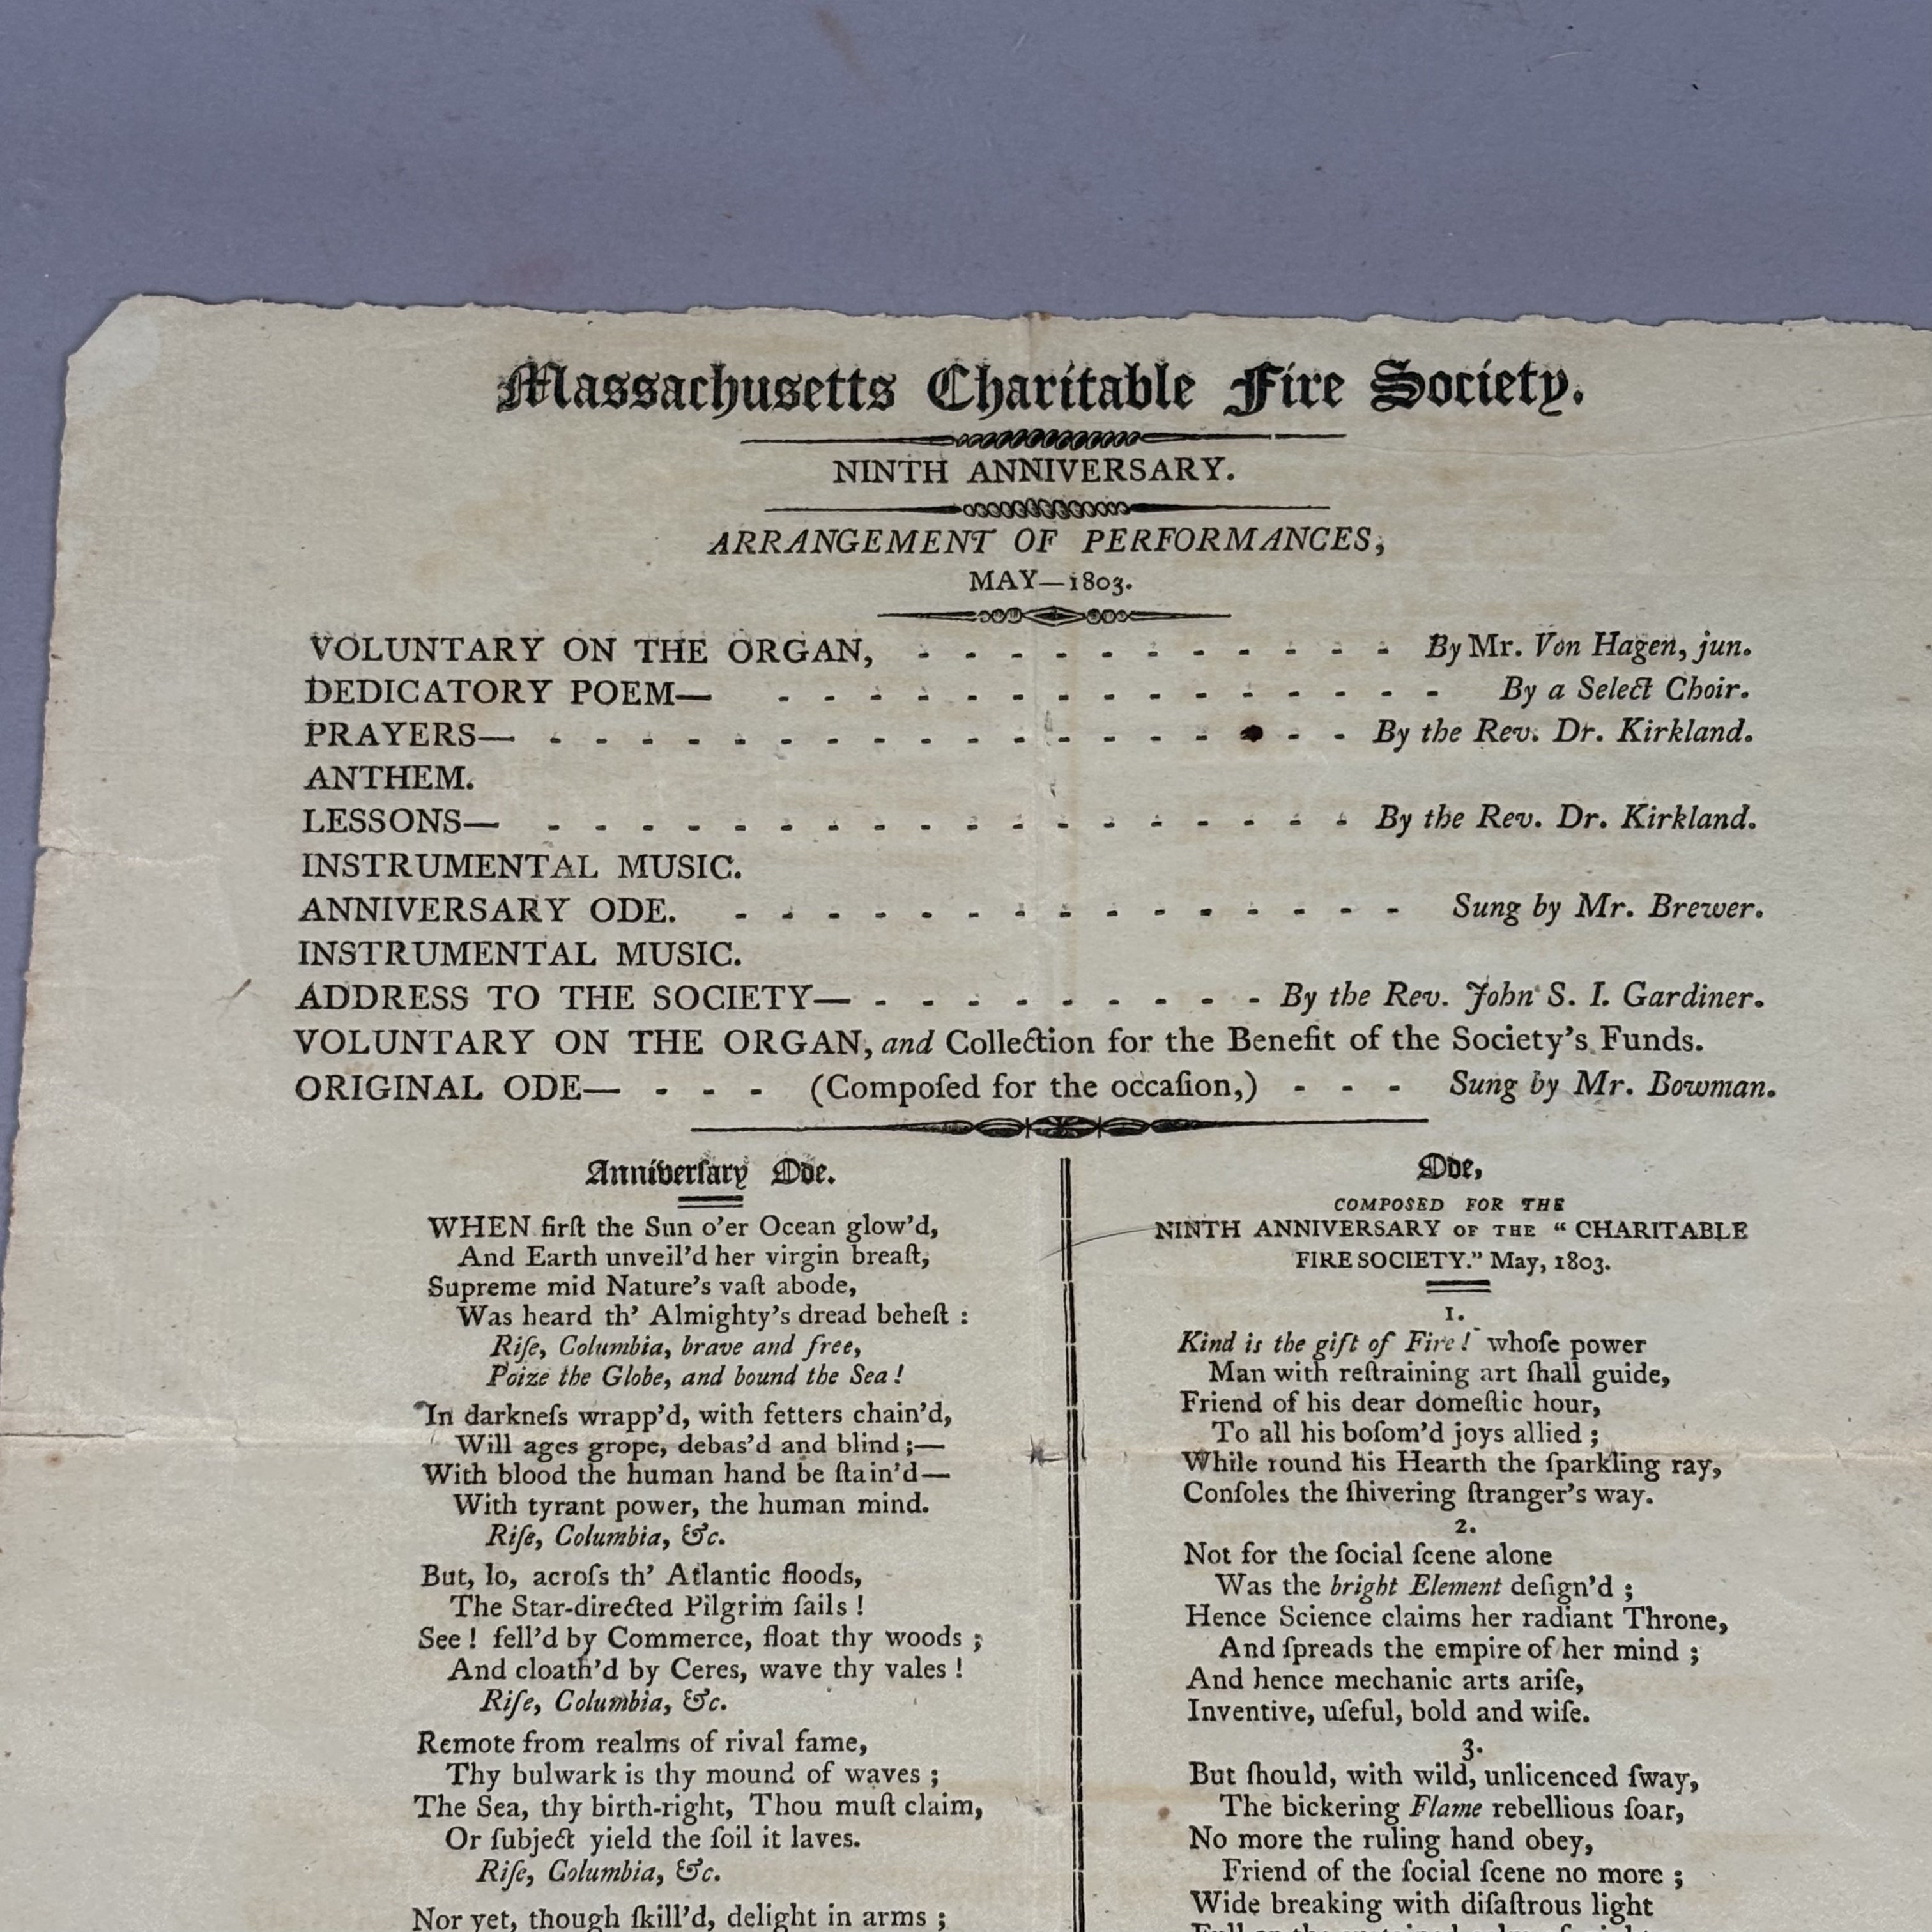 Massachusetts Charitable Fire Society.
NINTH ANNIVERSARY.
ARRANGEMENT OF PERFORMANCES,
MAY—1803.
VOLUNTARY ON THE ORGAN, - - - - - - - - - - - By Mr. Von Hagen, jun.
DEDICATORY POEM— - - - - - - - - - - - - - - - By a Select Choir.
PRAYERS— - - - - - - - - - - - - - - - - - - By the Rev. Dr. Kirkland.
ANTHEM.
LESSONS— - - - - - - - - - - - - - - - - - - By the Rev. Dr. Kirkland.
INSTRUMENTAL MUSIC.
ANNIVERSARY ODE. - - - - - - - - - - - - - - - Sung by Mr. Brewer.
INSTRUMENTAL MUSIC.
ADDRESS TO THE SOCIETY— - - - - - - - - - By the Rev. John S. I. Gardiner.
VOLUNTARY ON THE ORGAN, and Collection for the Benefit of the Society's Funds.
ORIGINAL ODE— - - - (Compoſed for the occaſion,) - - - Sung by Mr. Bowman.
Anniverſary Ode.
WHEN firſt the Sun o'er Ocean glow'd,
And Earth unveil'd her virgin breaſt,
Supreme mid Nature's vaſt abode,
Was heard th' Almighty's dread beheſt :
Riſe, Columbia, brave and free,
Poize the Globe, and bound the Sea !
In darkneſs wrapp'd, with fetters chain'd,
Will ages grope, debas'd and blind ;—
With blood the human hand be ſtain'd—
With tyrant power, the human mind.
Riſe, Columbia, &c.
But, lo, acroſs th' Atlantic floods,
The Star-directed Pilgrim ſails !
See ! fell'd by Commerce, float thy woods ;
And cloath'd by Ceres, wave thy vales !
Riſe, Columbia, &c.
Remote from realms of rival fame,
Thy bulwark is thy mound of waves ;
The Sea, thy birth-right, Thou muſt claim,
Or ſubject yield the ſoil it laves.
Riſe, Columbia, &c.
Nor yet, though ſkill'd, delight in arms ;
Ode,
COMPOSED FOR THE
NINTH ANNIVERSARY OF THE " CHARITABLE
FIRE SOCIETY." May, 1803.
1.
Kind is the gift of Fire ! whoſe power
Man with reſtraining art ſhall guide,
Friend of his dear domeſtic hour,
To all his boſom'd joys allied ;
While round his Hearth the ſparkling ray,
Conſoles the ſhivering ſtranger's way.
2.
Not for the ſocial ſcene alone
Was the bright Element deſign'd ;
Hence Science claims her radiant Throne,
And ſpreads the empire of her mind ;
And hence mechanic arts ariſe,
Inventive, uſeful, bold and wiſe.
3.
But ſhould, with wild, unlicenced ſway,
The bickering Flame rebellious ſoar,
No more the ruling hand obey,
Friend of the ſocial ſcene no more ;
Wide breaking with diſaſtrous light